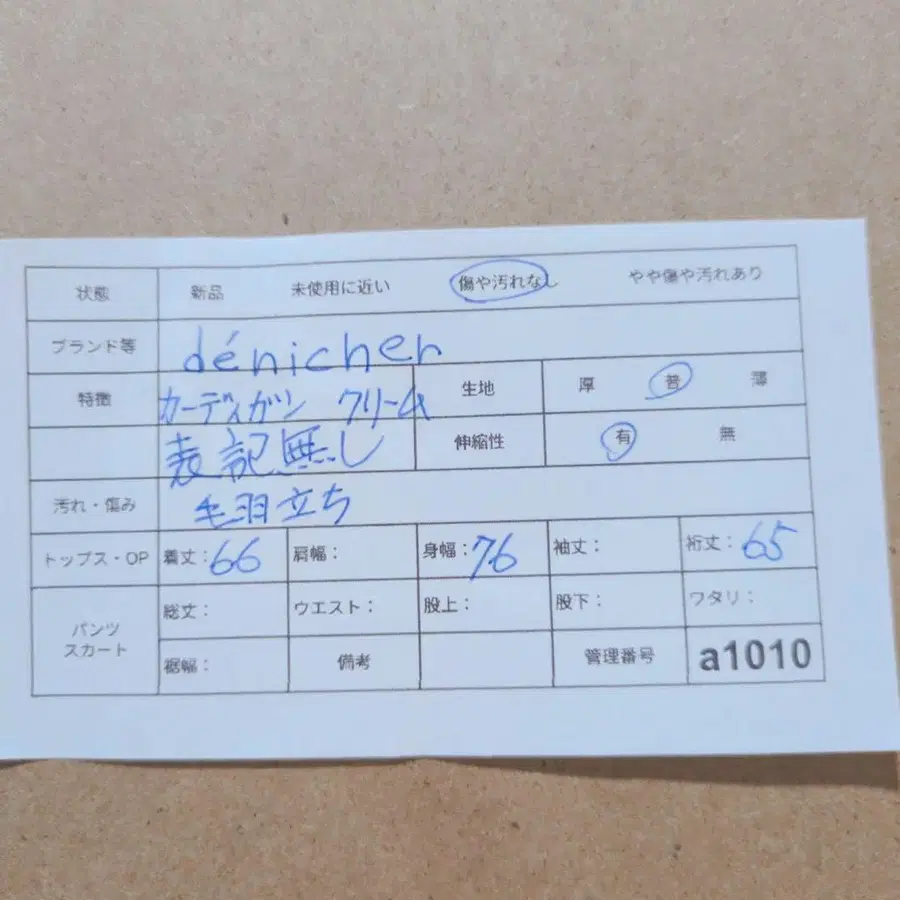 状態 新品 未使用に近い 傷や汚れなし やや傷や汚れあり
ブランド等 dénicher
特徴 カーディガン クリーム 生地 厚 普 薄
表記無し 伸縮性 有 無
汚れ・傷み 毛羽立ち
トップス・OP 着丈:66 肩幅: 身幅:76 袖丈: 裄丈:65
パンツ スカート 総丈: ウエスト: 股上: 股下: ワタリ:
裾幅: 備考 管理番号 a1010